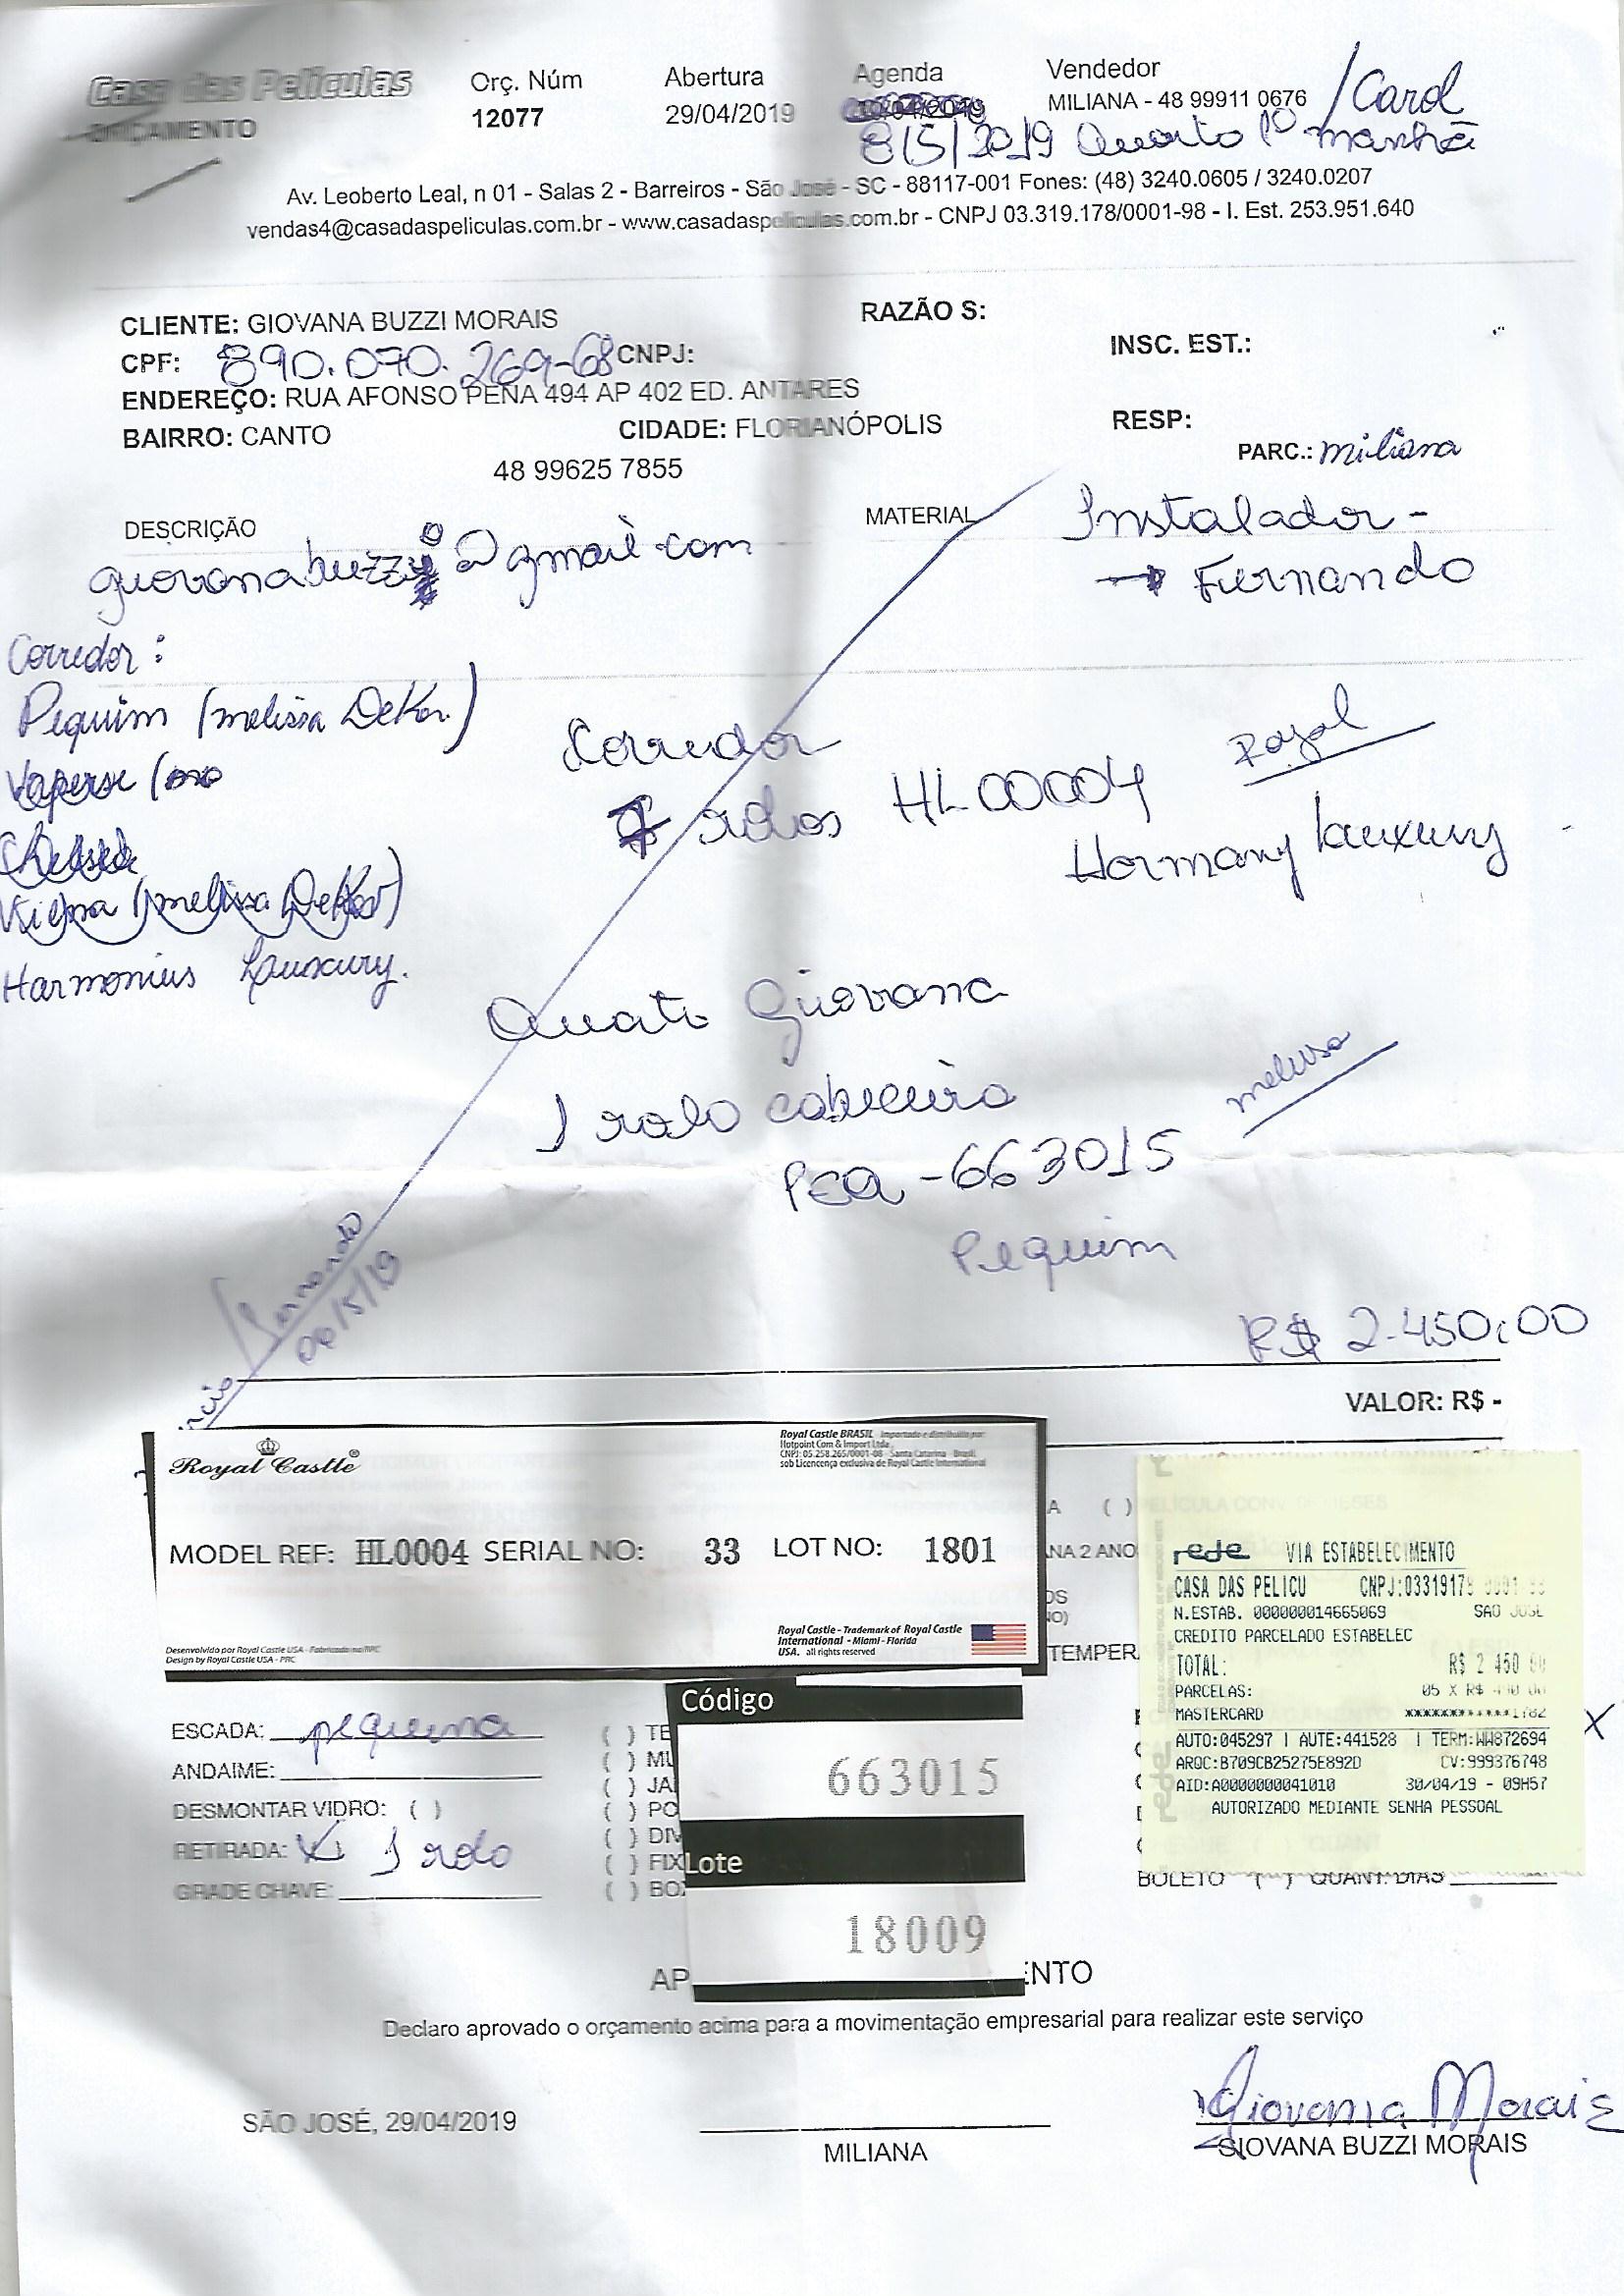 Casa das Películas
ORÇAMENTO
Orç. Núm
12077
Abertura
29/04/2019
Agenda
8/5/2019 Quarto 1º manhã
Vendedor
MILIANA - 48 99911 0676 /Carol
Av. Leoberto Leal, n 01 - Salas 2 - Barreiros - São José - SC - 88117-001 Fones: (48) 3240.0605 / 3240.0207
vendas4@casadaspeliculas.com.br - www.casadaspeliculas.com.br - CNPJ 03.319.178/0001-98 - I. Est. 253.951.640
CLIENTE: GIOVANA BUZZI MORAIS
RAZÃO S:
CPF: 890.070.269-68 CNPJ:
INSC. EST.:
ENDEREÇO: RUA AFONSO PENA 494 AP 402 ED. ANTARES
BAIRRO: CANTO
CIDADE: FLORIANÓPOLIS
RESP:
48 99625 7855
PARC.: miliana
DESCRIÇÃO
MATERIAL
Instalador -
→ Fernando
giovanabuzzi@gmail.com
Corredor :
Pequim (melissa DeKor.)
Viena (melissa DeKor)
Harmonius Lauxury.
Corredor
7 rolos HL00004
Royal
Hormany lauxury
Quarto Giovana
1 rolo cabeceira
melissa
PEQ - 663015
Pequim
Fernando
R$ 2.450,00
VALOR: R$ -
Royal Castle®
Royal Castle BRASIL Importado e distribuído por:
Hotpoint Com & Import Ltda
CNPJ: 05.258.265/0001-08 - Santa Catarina - Brasil
sob Licencença exclusiva de Royal Castle International
MODEL REF: HL0004 SERIAL NO: 33 LOT NO: 1801
Desenvolvido por Royal Castle USA - Fabricado na PRC
Design by Royal Castle USA - PRC
Royal Castle - Trademark of Royal Castle
International - Miami - Florida
USA. all rights reserved
A ( )
NA 2 ANO
OS
NO)
TEMPER
rede VIA ESTABELECIMENTO
CASA DAS PELICU CNPJ:03319178
N.ESTAB. 000000014665069 SAO JOSE
CREDITO PARCELADO ESTABELEC
TOTAL: R$ 2 450 00
PARCELAS: 05 X R$ 490 00
MASTERCARD ************1782
AUTO:045297 | AUTE:441528 | TERM:WW872694
ARQC:B709CB25275E892D CV:999376748
AID:A0000000041010 30/04/19 - 09H57
AUTORIZADO MEDIANTE SENHA PESSOAL
X
ESCADA: pequena
ANDAIME:
DESMONTAR VIDRO: ( )
RETIRADA: X 1 rolo
GRADE CHAVE:
( ) TE
( ) MU
( ) JA
( ) PO
( ) DIV
( ) FIX
( ) BO
Código
663015
Lote
18009
BOLETO ( ) QUANT. DIAS
AP
ENTO
Declaro aprovado o orçamento acima para a movimentação empresarial para realizar este serviço
SÃO JOSÉ, 29/04/2019
MILIANA
Giovana Morais
GIOVANA BUZZI MORAIS